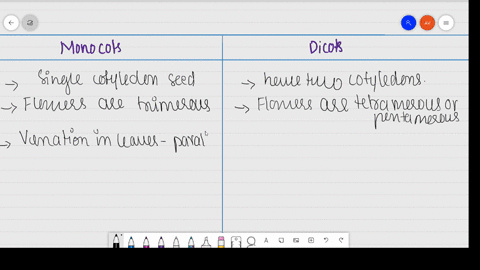 Monocots
Dicots
→ Single cotyledon seed
→ have two cotyledons.
→ Flowers are trimerous
→ Flowers are tetramerous or
pentamerous
→ Venation in leaves - paral